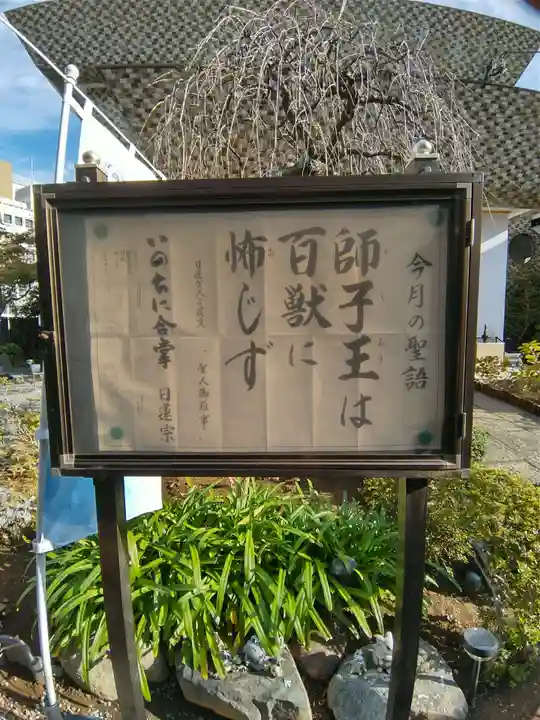 今月の聖語
師子王は
百獣に
怖じず
日蓮聖人ご遺文 「聖人御難事」
いのちに合掌 日蓮宗